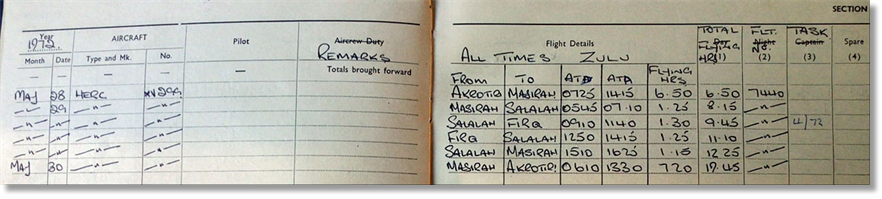 SECTION
Year 1972. AIRCRAFT Pilot Aircrew Duty REMARKS Flight Details ALL TIMES ZULU TOTAL Day FLYING HRS (1) FLT. Night No. (2) TASK Captain (3) Spare (4)
Month Date Type and Mk. No.
— — — — — Totals brought forward
FROM TO ATD ATA FLYING HRS
MAY 28 HERC XV299 AKROTIRI MASIRAH 0725 1415 6.50 6.50 7440
–"– 29 –"– –"– MASIRAH SALALAH 0545 07.10 1.25 8.15 –"–
–"– –"– –"– –"– SALALAH FIRQ 0910 1140 1.30 9.45 –"– 4/72
–"– –"– –"– –"– FIRQ SALALAH 1250 1415 1.25 11.10 –"–
–"– –"– –"– –"– SALALAH MASIRAH 1510 1625 1.15 12.25 –"–
MAY 30 –"– –"– MASIRAH AKROTIRI 0610 1330 7.20 19.45 –"–